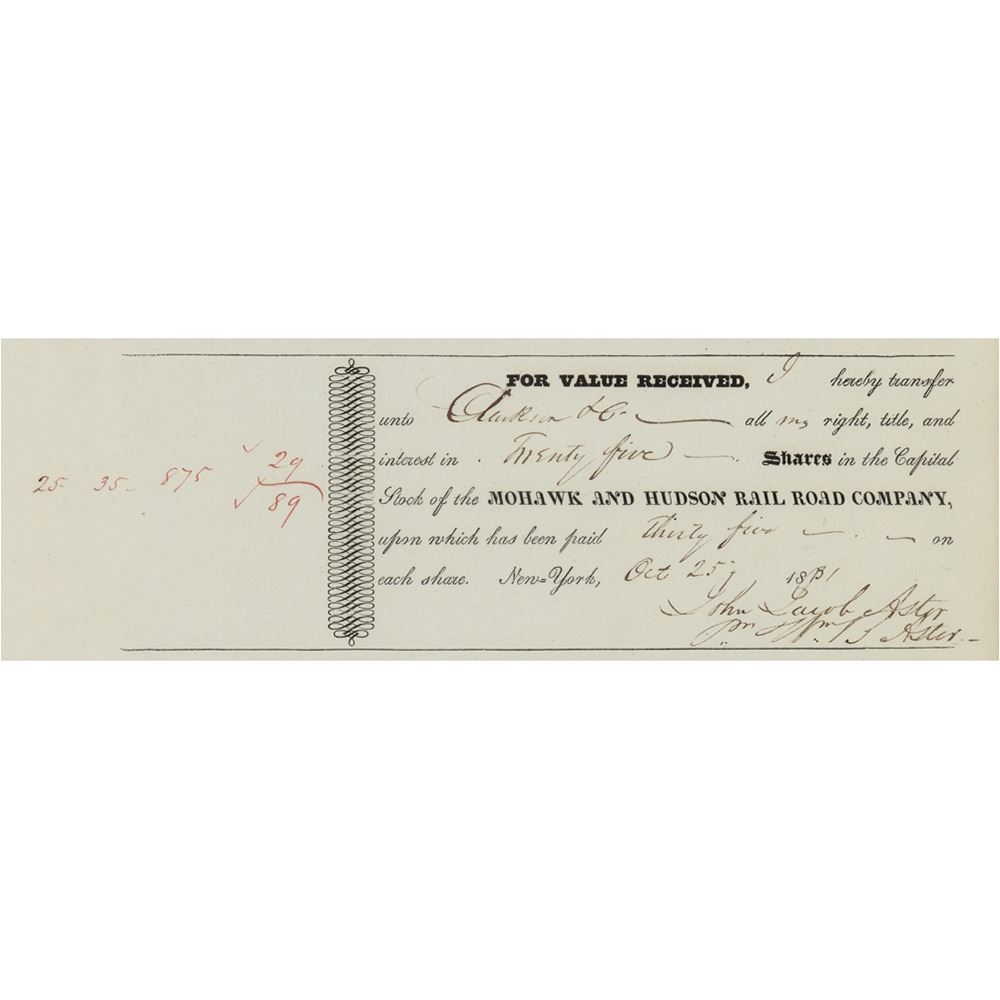 FOR VALUE RECEIVED, I hereby transfer
unto Clarkson & Co — all my right, title, and
interest in . Twenty five — . Shares in the Capital
Stock of the MOHAWK AND HUDSON RAIL ROAD COMPANY,
upon which has been paid Thirty five — . — on
each share. New=York, Oct 25 1831
John Jacob Astor
pr Wm B Astor. —
25 35 875 29
89